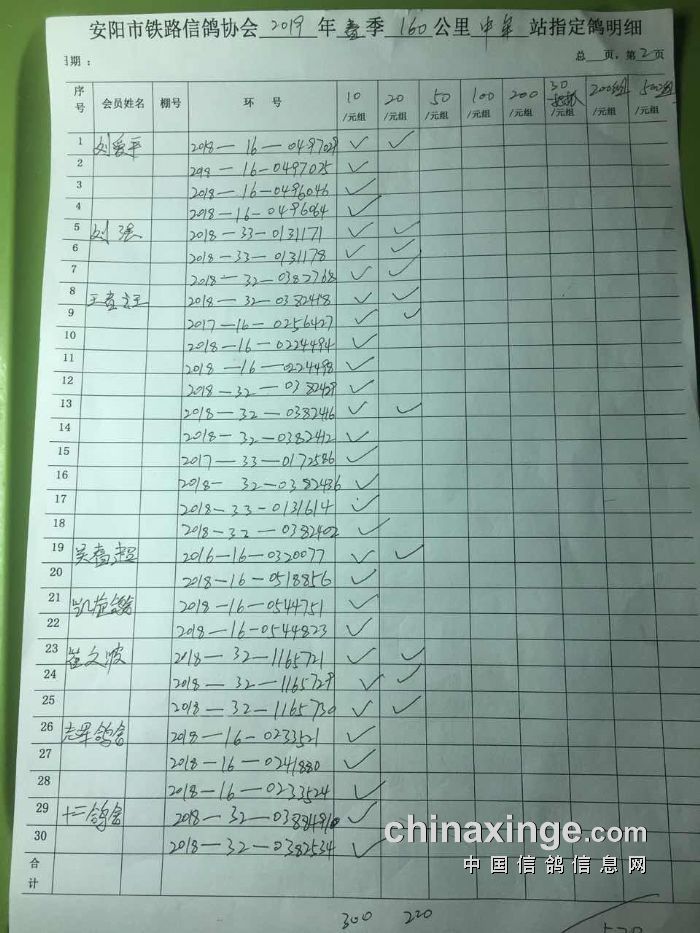 安阳市铁路信鸽协会 2019 年 春 季 160 公里 中牟 站指定鸽明细
日期： 总 页，第 2 页
序号 会员姓名 棚号 环 号 10/元组 20/元组 50/元组 100/元组 200/元组 30 200/组 500/组
1 刘爱平 2018-16-0497029 ✓ ✓
2 2018-16-0497025 ✓
3 2018-16-0496046 ✓
4 2018-16-0496064 ✓
5 刘强 2018-33-0131171 ✓ ✓
6 2018-33-0131178 ✓ ✓
7 2018-32-0382768 ✓ ✓
8 2018-32-0382418 ✓ ✓
9 2017-16-0256427 ✓ ✓
10 2018-16-0224494 ✓
11 2018-16-0224498 ✓
12 2018-32-0382429 ✓
13 2018-32-0382416 ✓ ✓
14 2018-32-0382412 ✓
15 2017-33-0172586 ✓
16 2018-32-0382436 ✓
17 2018-33-0131614 ✓
18 2018-32-0382402 ✓
19 2016-16-0320077 ✓ ✓
20 2018-16-0518856 ✓
21 凯旋鸽舍 2018-16-0544751 ✓
22 2018-16-0544823 ✓
23 崔文波 2018-32-1165721 ✓ ✓
24 2018-32-1165729 ✓ ✓
25 2018-32-1165730 ✓ ✓
26 志军鸽舍 2018-16-0233521 ✓
27 2018-16-0241880 ✓
28 2018-16-0233524 ✓
29 十二鸽舍 2018-32-0384490 ✓
30 2018-32-0382534 ✓
合计
300 220
520
chinaxinge.com
中国信鸽信息网